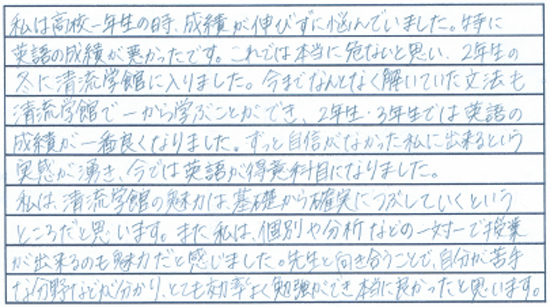 私は高校一年生の時、成績が伸びずに悩んでいました。特に
英語の成績が悪かったです。これでは本当に危ないと思い、2年生の
冬に清流学館に入りました。今までなんとなく解いていた文法も
清流学館で一から学ぶことができ、2年生・3年生では英語の
成績が一番良くなりました。ずっと自信がなかった私に出来るという
実感が湧き、今では英語が得意科目になりました。
私は、清流学館の魅力は、基礎から確実につぶしていくという
ところだと思います。また私は、個別や分析などの一対一で授業
が出来るのも魅力だと感じました。先生と向き合うことで、自分が苦手
な分野などが分かり、とても効率よく勉強ができ本当に良かったと思います。